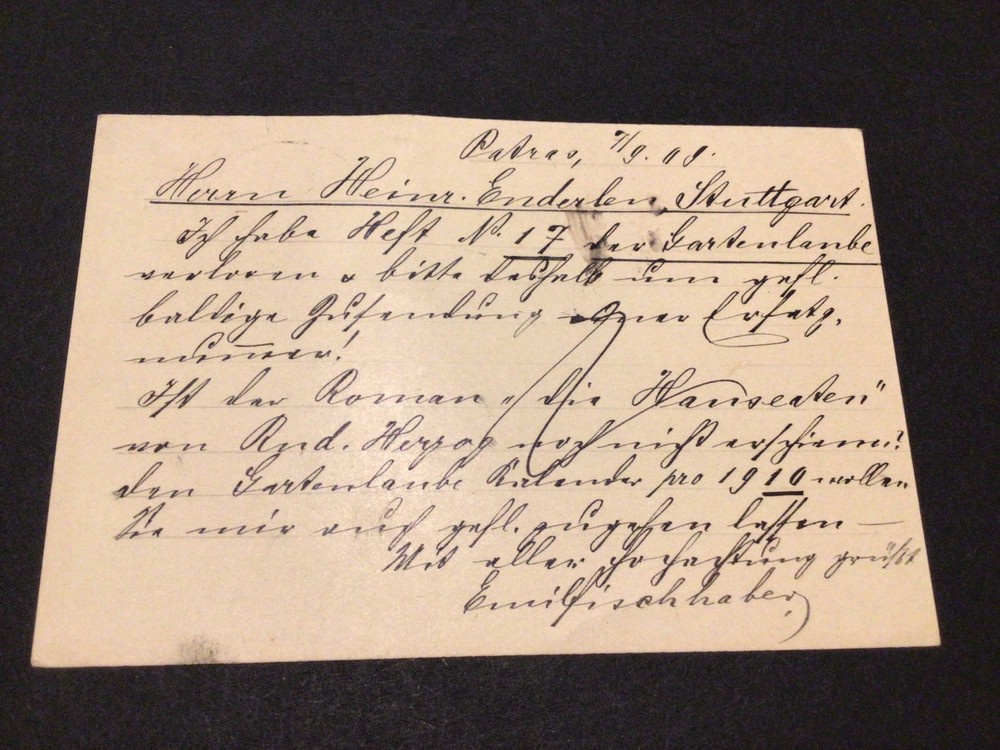 Patras, 7/9. 09.
Herrn Heinr. Enderlen, Stuttgart.
Ich habe Heft No. 17 der Gartenlaube
verloren & bitte deshalb um gefl.
baldige Zusendung einer Ersatz-
nummer!
Ist der Roman "die Hanseaten"
von Rud. Herzog noch nicht erschienen?
den Gartenlaube Kalender pro 1910 wollen
Sie mir auch gefl. zugehen lassen —
Mit aller Hochachtung grüßt
Emil Fischhaber